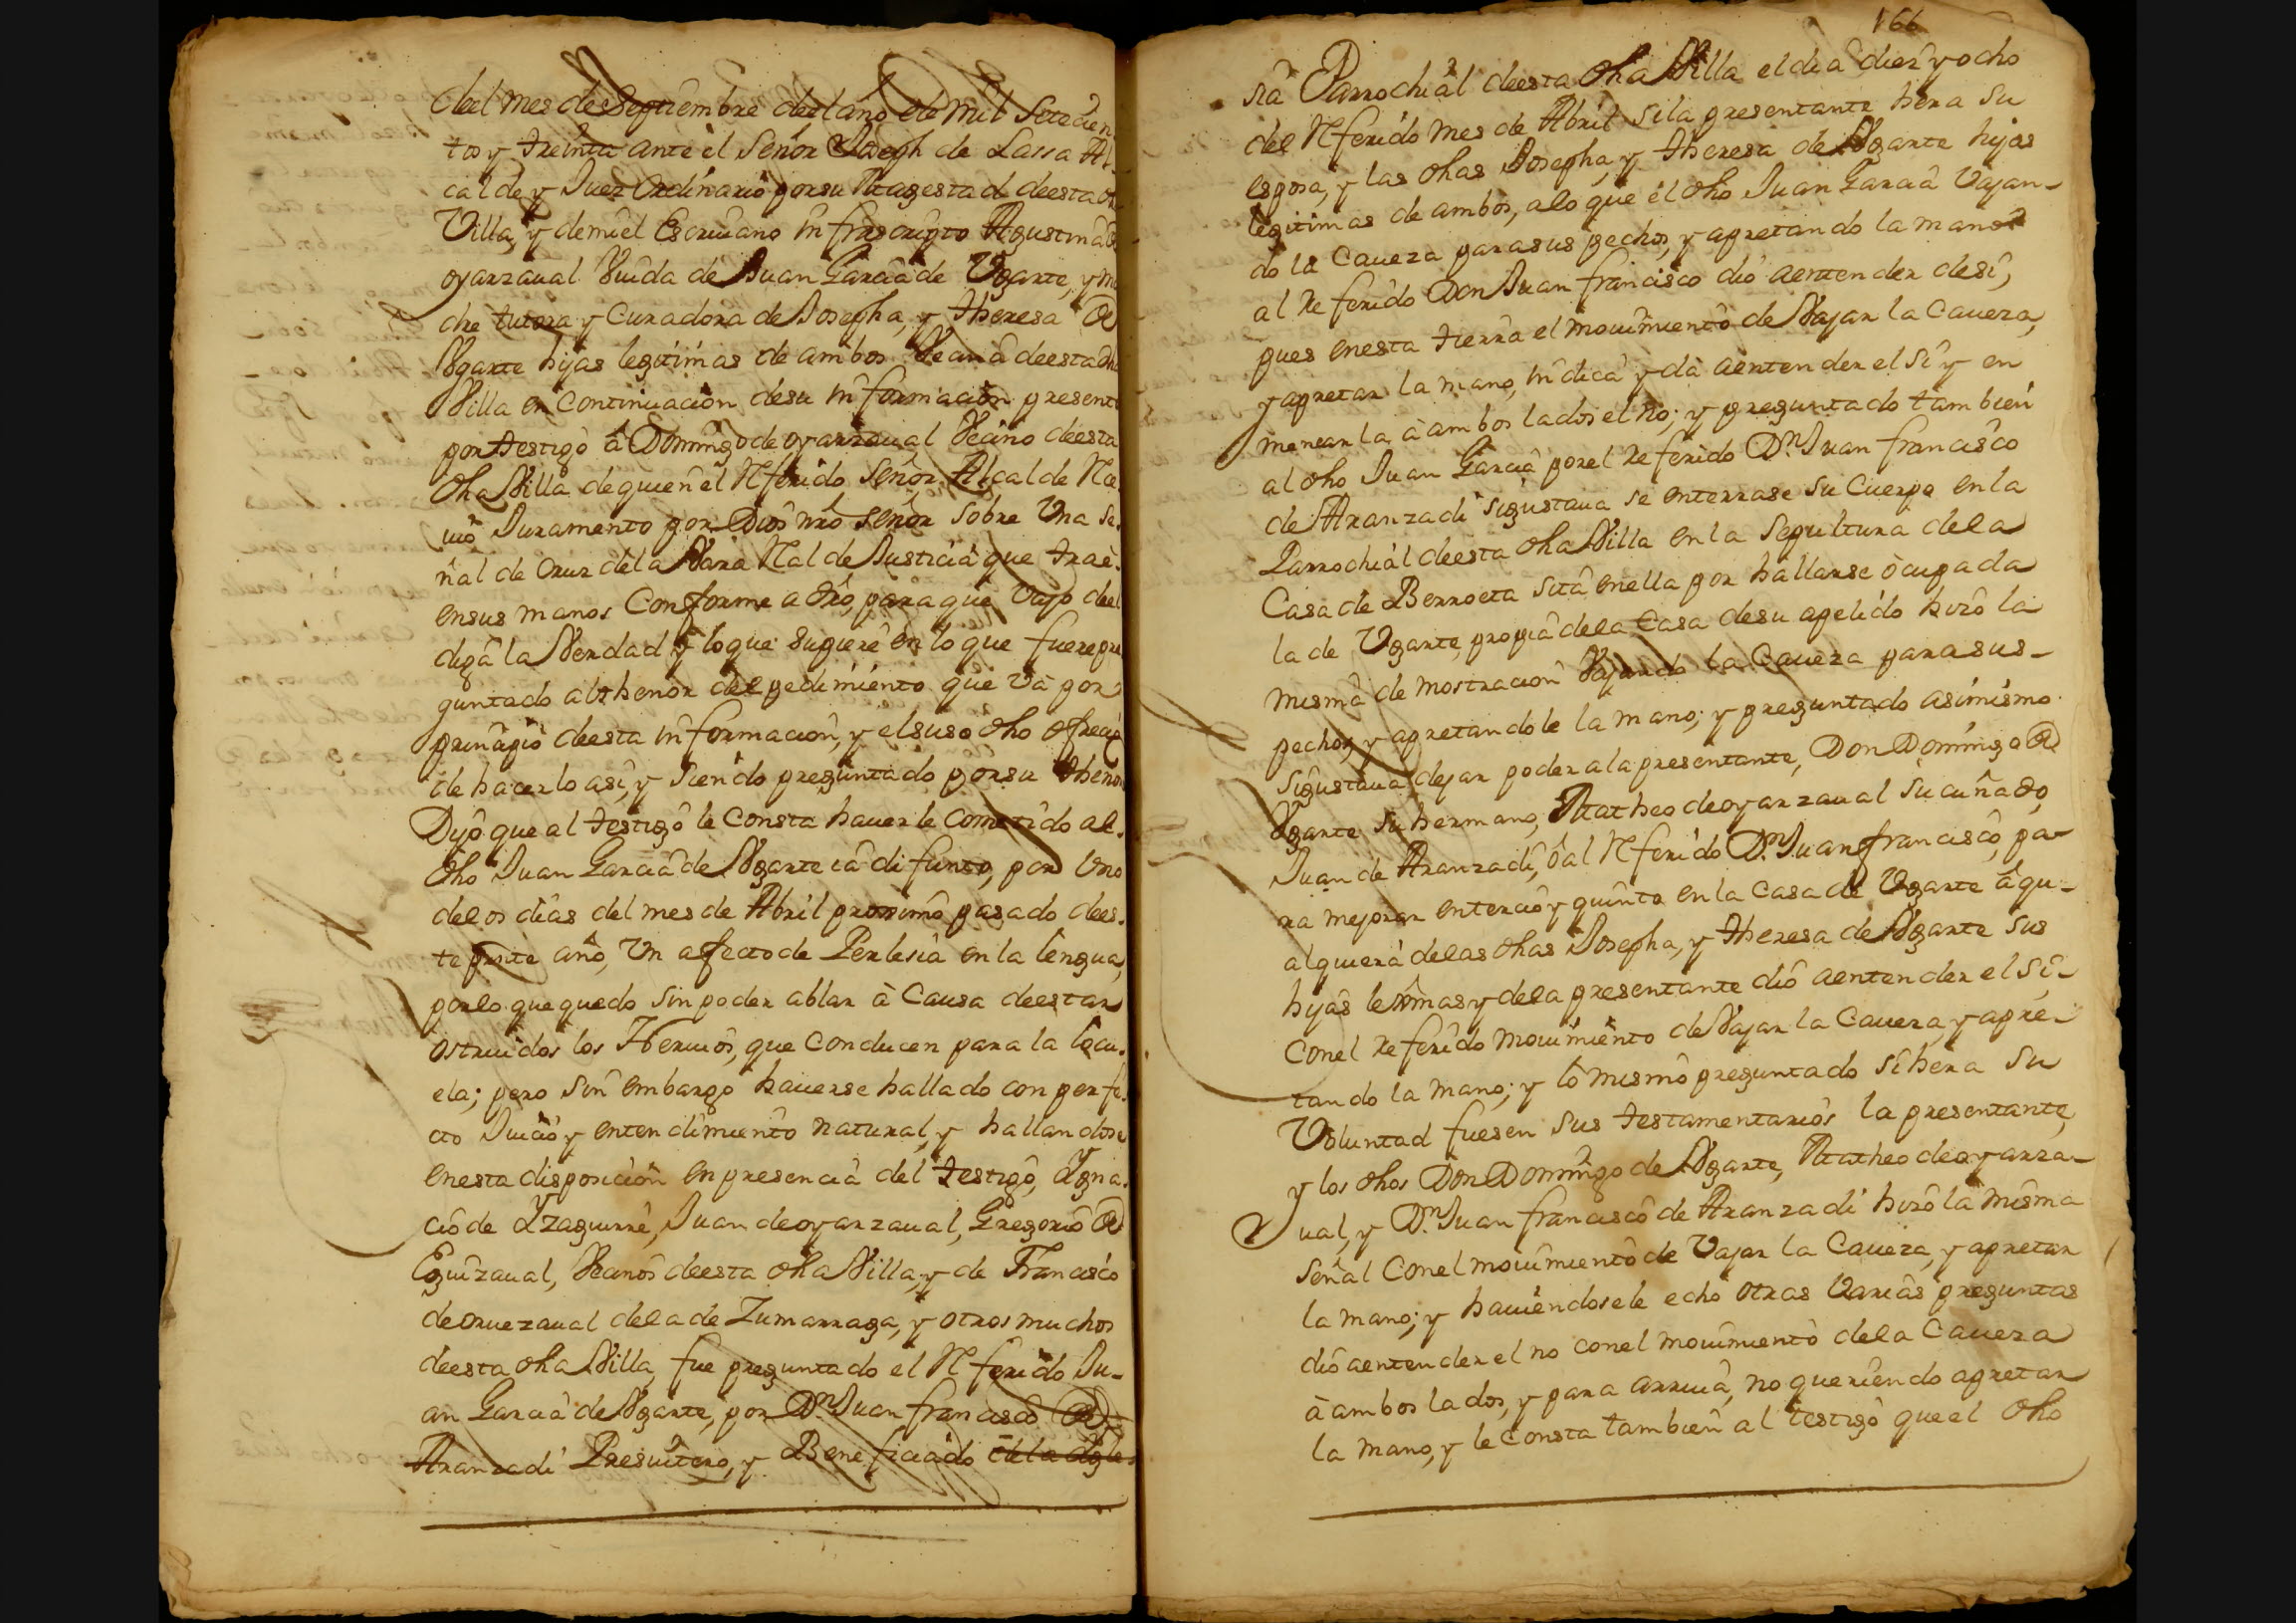 deel mes de Septiembre deel año de mil Setecien
tos y treinta ante el Señor Joseph de Lassa Al-
calde y Juez Ordinario por su Magestad deesta dha
Villa, y de mi el Escriuano infrascripto Agustina de
oyarzaual Viuda de Juan Garcia de Ugarte, y ma
dre tutora y Curadora de Josepha, y Theresa de
Ugarte hijas legitimas de ambos Vecina deesta dha
Villa en Continuacion de su informacion presento
por testigo â Domingo de oyarzaual Vecino deesta
dha Villa de quien el Rferido Señor Alcalde Rce
uio Juramento por Dios nrô señor sobre Una Se-
ñal de Cruz de la Vara Rl de Justicia que trae
en sus manos Conforme a drô, para que Vajo deel
diga la Verdad y lo que supiere en lo que fuere pre
guntado al thenor del pedimiento que và por
principio deesta informacion, y el suso dho ofrecio
de hacerlo asi, y siendo preguntado por su thenor
Dijo que al testigo le Consta hauerle Cometido al
dho Juan Garcia de Ugarte ia difunto, por Uno
de los dias del mes de Abril proximo pasado dees-
te pnte año, Un afecto de Perlesia en la lengua,
por lo que quedo sin poder ablar à Causa deestar
ostruidos los Neruios, que Conducen para la loqu-
ela; pero sin embargo hauerse hallado con perfe-
cto Juicio y entendimiento natural, y hallandose
en esta disposicion en presencia del testigo, Ygna-
cio de Yzaguirre, Juan de oyarzaual, Gregorio de
Eguizaual, Vecinos deesta dha Villa, y de Francisco
de oruezaual de la de Zumarraga, y otros muchos
deesta dha Villa, fue preguntado el Rferido Ju-
an Garcia de Ugarte, por Dn Juan francisco de
Aranzadi Presuitero, y Beneficiado de la Ygle-
166
sia Parrochial deesta dha Villa el dia diez y ocho
del Rferido mes de Abril si la presentante hera su
esposa, y las dhas Josepha, y Theresa de Ugarte hijas
legitimas de ambos, a lo que el dho Juan Garcia Vajan-
do la Caueza para sus pechos, y apretando la mano
al Referido Don Juan francisco dio a entender de si,
pues en esta tierra el mouimiento de Vajar la Caueza,
y apretar la mano, indica y dà a entender el si y en
menearla à ambos lados el no; y preguntado tambien
al dho Juan Garcia por el Referido Dn Juan francisco
de Aranzadi si gustaua se enterrase su Cuerpo en la
Parrochial deesta dha Villa en la Sepultura de la
Casa de Berroeta sita en ella por hallarse ocupada
la de Ugarte, propia de la Casa de su apelido hizo la
misma demostracion Vajando la Caueza para sus
pechos, y apretandole la mano; y preguntado asimismo
si gustaua dejar poder a la presentante, Don Domingo de
Ugarte su hermano, Matheo de oyarzaual su cuñado,
Juan de Aranzadi, ò al Rferido Dn Juan francisco, pa-
ra mejorar en tercio y quinto en la Casa de Ugarte â qu-
alquiera de las dhas Josepha, y Theresa de Ugarte sus
hijas lexmas y de la presentante dio a entender el si
Con el Referido mouimiento de Vajar la Caueza, y apre-
tando la mano; y lo mismo preguntado si hera su
Voluntad fuesen sus testamentarios la presentante,
y los dhos Don Domingo de Ugarte, Matheo de oyarza-
ual, y Dn Juan francisco de Aranzadi hizo la misma
señal Con el mouimiento de Vajar la Caueza, y apretar
la mano; y hauiendosele echo otras Varias preguntas
dio a entender el no con el mouimiento de la Caueza
à ambos lados, y para arriua, no queriendo apretar
la mano, y le Consta tambien al testigo que el dho